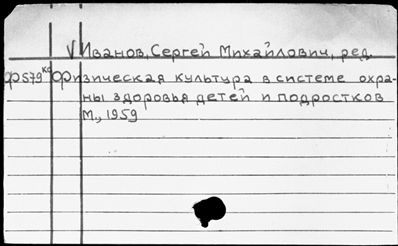 √ Иванов, Сергей Михайлович, ред.
Ф579кс Физическая культура в системе охра-
ны здоровья детей и подростков
М., 1959